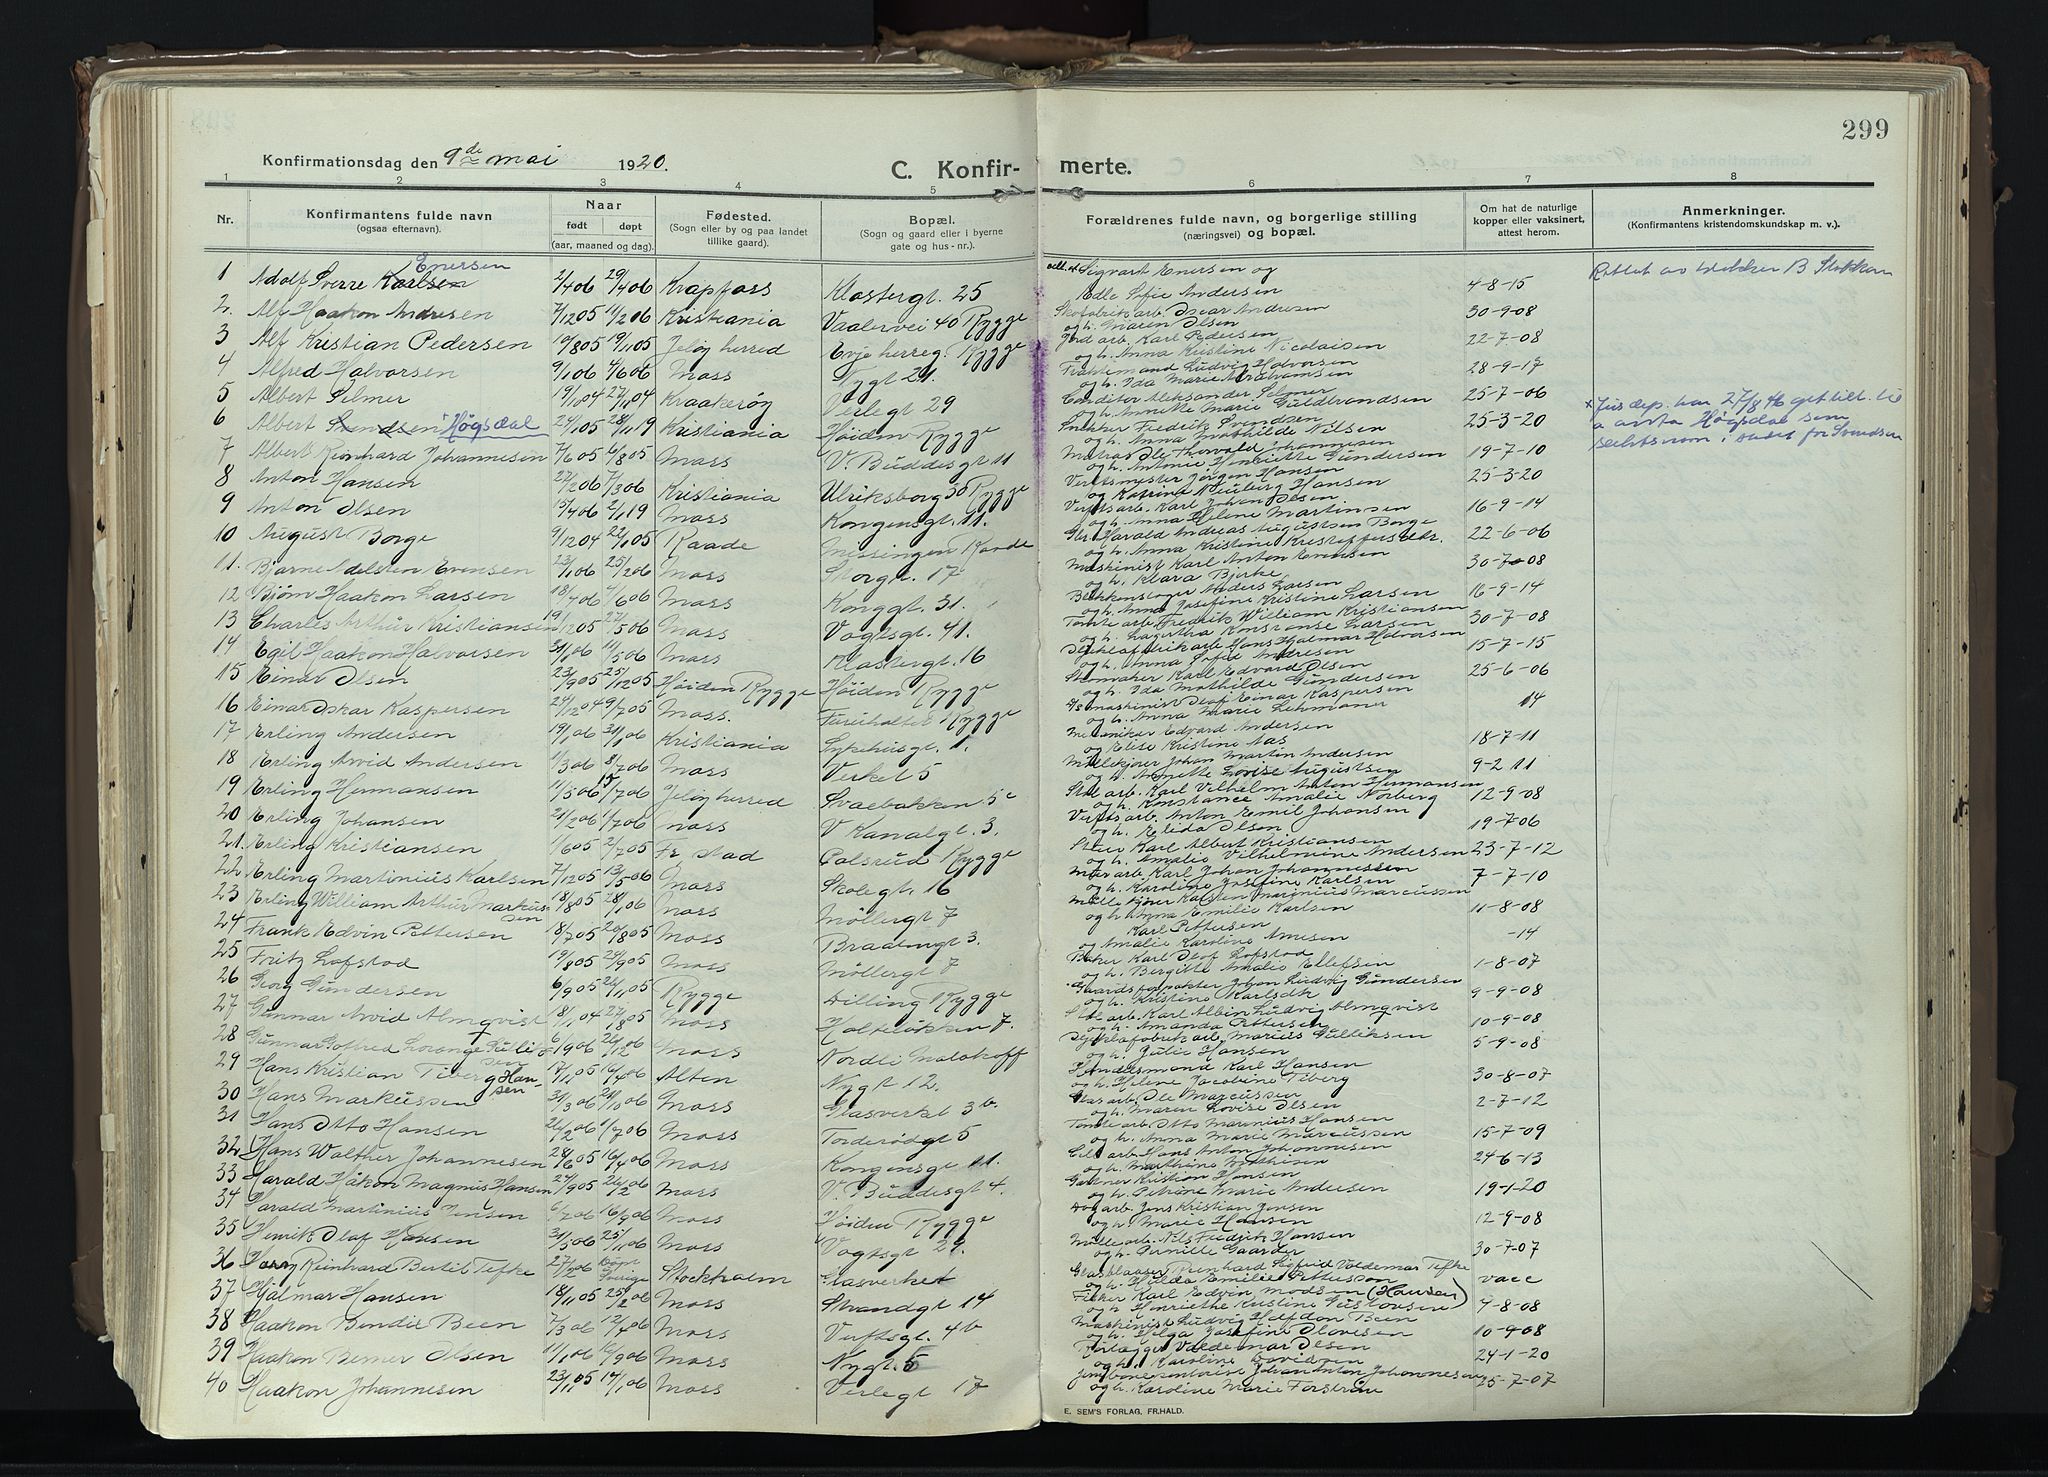 299
Konfirmationsdag den 9de mai 1920.
C. Konfirmerte.
1 2 3 4 5 6 7 8
Nr. Konfirmantens fulde navn (ogsaa efternavn). Naar født døpt (aar, maaned og dag). Fødested. (Sogn eller by og paa landet tillike gaard). Bopæl. (Sogn og gaard eller i byerne gate og hus-nr.). Forældrenes fulde navn, og borgerlige stilling (næringsvei) og bopæl. Om hat de naturlige kopper eller vaksinert, attest herom. Anmerkninger. (Konfirmantens kristendomskundskap m. v.).
1 Adolf Sverre Karlsen Enersen 2/4 06 29/4 06 Krapfoss Klostergt. 25 Sigvart Enersen og Edle Sofie Andersen 4-8-15
2 Alf Haakon Andresen 7/12 05 11/2 06 Kristiania Vaalervei 40 Rygge Skofabrikarb. Oscar Andresen og h. Maren Olsen 30-9-08
3 Alf Kristian Pedersen 19/8 05 19/11 05 Jeløy herred Evje herreg. Rygge Jord arb. Karl Pedersen og h. Anna Kristine Nicolaisen 22-7-08
4 Alfred Halvorsen 9/1 06 4/6 06 Moss Nygt 21. Ludvig Halvorsen og h. Ida Marie Abrahamsen 28-9-17
5 Albert Selmer 19/1 04 27/11 04 Kraakerøy Verlegt 29 Conditor Aleksander Selmer og h. Annette Marie Guldbrandsen 25-7-06
6 Albert Svendsen × Høgsdal 24/1 05 28/1 19 Kristiania Høiden Rygge Snekker Fredrik Svendsen og h. Anna Mathilde Nilsen 25-3-20 × Jus. dep. har 27/8 46 git till. til a anta Høgsdal som slektsnavn i stedet for Svendsen
7 Albert Reinhard Johannesen 7/6 05 6/8 05 Moss V. Buddesgt 11 Matros Ole Thorvald Johannesen og h. Antonie Henriette Gundersen 19-7-10
8 Anton Hansen 27/2 06 7/3 06 Kristiania Ulriksborg 30 Rygge Verftsmester Jørgen Hansen og Katrine Neuberg Hansen 25-3-20
9 Anton Olsen 3/4 06 2/1 19 Moss Kongensgt. 11. Verftsarb. Karl Johan Olsen og h. Anna Helene Martinsen 16-9-14
10 August Borge 9/12 04 22/1 05 Raade Missingen Raade Harald Andreas Augustsen Borge og h. Anna Kristine Kristoffersdtr. 22-6-06
11. Bjarne Adelsten Evensen 23/1 06 25/2 06 Moss Storgt. 17 Maskinist Karl Anton Evensen og h. Klara Bjerke 30-7-08
12 Bjørn Haakon Larsen 18/4 06 4/6 06 Moss Konggt. 31. Blikkenslager Anders Larsen og h. Anna Josefine Kristine Larsen 16-9-14
13 Charles Arthur Kristiansen 19/12 05 27/5 06 Moss Vogtsgt. 41. Tomtearb. Fredrik William Kristiansen og h. Lagertha Konstanse Larsen 30-7-08
14 Egil Haakon Halvorsen 31/1 06 11/5 06 Moss Klostergt. 16 Hans Hjalmar Halvorsen og h. Anna Sofie Andresen 15-7-15
15 Einar Olsen 23/9 05 25/12 05 Høiden Rygge Høiden Rygge Karl Edvard Olsen og h. Ida Mathilde Gundersen 25-6-06
16 Einar Oskar Kaspersen 24/12 04 9/7 05 Moss. Furuholtet Rygge maskinist Olaf Einar Kaspersen og h. Anna Marie Lehmann 14
17 Erling Andersen 19/1 06 31/1 06 Kristiania Sykehusgt. 1. Mekaniker Edvard Andersen og Elise Kristine Aas 18-7-11
18 Erling Arvid Andersen 11/3 06 8/7 06 Moss Verket 5 Møllekjører Johan Martin Andersen og h. Annette Lovise Augustsen 9-2 11
19 Erling Hermansen 11/5 06 15/7 06 Jeløy herred Svaebakken 5c Karl Vilhelm Anton Hermansen og h. Konstance Amalie Norberg 12-9-08
20 Erling Johansen 21/2 06 1/7 06 Moss V Kanalgt. 3. Verftsarb. Anton Emil Johansen og h. Elida Olsen 19-7-06
21. Erling Kristiansen 1/6 05 2/7 05 Fr. stad Carlsrud Rygge Karl Albert Kristiansen og h. Amalie Vilhelmine Andersen 23-7-12
22 Erling Martinius Karlsen 7/12 05 13/5 06 Moss Skolegt. 16 Karl Johan Johannessen og h. Karoline Josefine Karlsen 7-7-10
23 Erling William Arthur Markussen 18/8 05 28/1 06 Moss Møllergt 7 Mølle kjører Karsten Marinius Marcussen og h Anna Emilie Karlsen 11-8-08
24 Frank Edvin Pettersen 18/7 05 20/8 05 Moss Braadengt 3. Karl Pettersen og Amalie Karoline Arnesen -14
25 Fritz Lofstad 19/8 05 24/9 05 Moss Møllergt 7 Baker Karl Olaf Lofstad og h. Bergitte Amalie Ellefsen 1-8-07
26 Georg Gundersen 6/9 05 26/11 05 Rygge Dilling Rygge Gaardsforpakter Johan Ludvig Gundersen og h. Kristine Karlsdtr 9-9-08
27 Gunnar Arvid Almqvist 18/11 04 27/8 05 Moss Holtebakken 7. Karl Albin Ludvig Almqvist og h. Amanda Pettersen 10-9-08
28 Gunnar Gotfred Lorange Gulliksen Moss Nordli Malakoff Marius Gulliksen og h. Julie Hansen 5-9-08
29 Hans Kristian Tiberg Hansen 17/11 05 16/4 06 Alten Nygt 12. Handelsmand Karl Hansen og h. Helene Jacobine Tiberg 30-8-07
30 Hans Markussen 31/3 06 21/10 06 Moss Glasverket 3b. Glasarb. Ole Marcussen og h. Maren Lovise Olsen 2-7-12
31 Hans Otto Hansen 26/2 06 1/7 06 Moss Torderødgt 5 Tomtearb Otto Marinius Hansen og h. Anna Marie Marcussen 15-7-09
32 Hans Walther Johannesen 28/6 05 16/4 06 Moss Kongensgt 11. Hans Anton Johannesen og h. Marthine Mathisen 24-6-13
33 Harald Håkon Magnus Hansen 27/9 05 26/2 06 Moss V. Buddesgt 4. Gartner Kristian Hansen og h. Petrine Marie Andersen 19-1-20
34 Harald Martinius Jensen 6/7 06 16/9 06 Moss Høiden Rygge Dagarb. Jens Kristian Jensen og h. Marie Hansen 12-9-08
35 Henrik Olaf Hansen 31/3 06 25/11 06 Moss Vogtsgt 29. Møllearb. Nils Fredrik Hansen og h. Pernille Gaarder 30-7-07
36 Harry Reinhard Bertil Tefke 27/2 06 døpt Sverige Stockholm Glasverket Glasblaaser Reinhard Sigfrid Valdemar Tefke og h. Hulda Emilie Pettersson vacc
37 Hjalmar Hansen 18/11 05 25/2 06 Moss Strandgt 14 Fisker Karl Edvin Madsen (Hansen) og h. Henriethe Kristine Gustavsen 7-8-08
38 Haakon Bendix Been 7/3 06 12/4 06 Moss Verftsgt. 4b Maskinist Ludvig Hoffdon Been og h. Helga Josefine Olavesen 10-9-08
39 Haakon Berner Olsen 11/1 06 16/9 06 Moss Nygt. 5 Valdemar Olsen og h. Karoline Davidsen 24-1-20
40 Haakon Johannesen 23/11 05 14/1 06 Moss Verlegt 17 Johan Anton Johannesen og h. Karoline Marie Forstrøm 25-7-07
E. SEM'S FORLAG, FR.HALD.